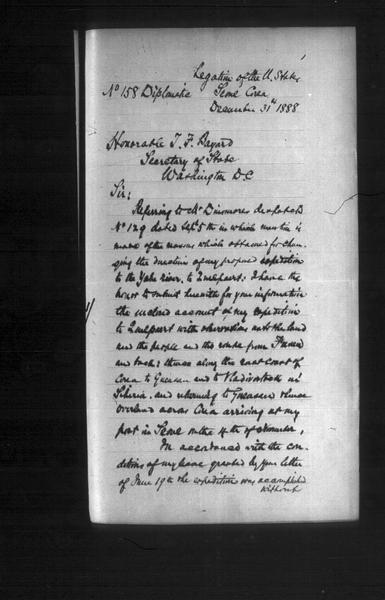 Legation of the U. States
No 158 Diplomatic Seoul Corea
December 31st 1888
Honorable T. F. Bayard
Secretary of State
Washington D.C
Sir:
Referring to Mr Dinsmores despatch
No 129 dated Sept 5th in which mention is
made of the reasons which obtained for chan-
ging the direction of my proposed expedition
to the Yalu river, to Quelpaert: I have the
honor to submit herewith for your information
the inclosed account of my expedition
to Quelpaert with observations as to the land
and the people and the route from Fusan
and back: thence along the east coast of
Corea to Gensan and to Vladivostock in
Siberia. and returning to Gensan thence
overland across Corea arriving at my
post in Seoul on the 4th of November.
In accordance with the con-
ditions of my leave granted by your letter
of June 19th the expedition was accomplished
without